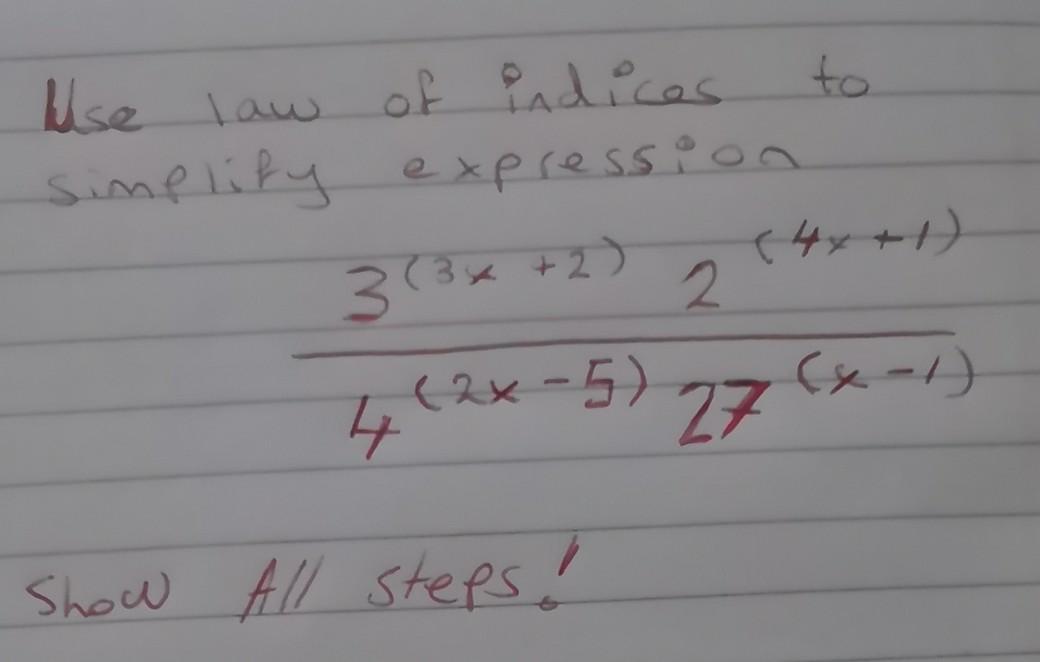 Use law of indices to
simplify expression
3^(3x +2) 2^(4x +1)
4^(2x -5) 27^(x -1)
Show All steps!